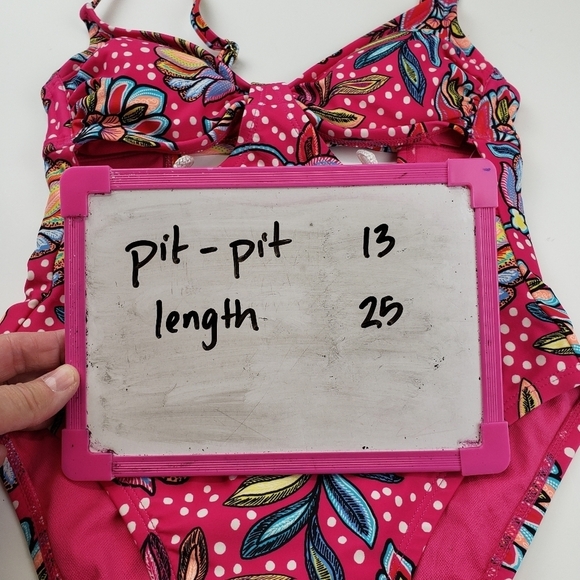 pit - pit 13
length 25